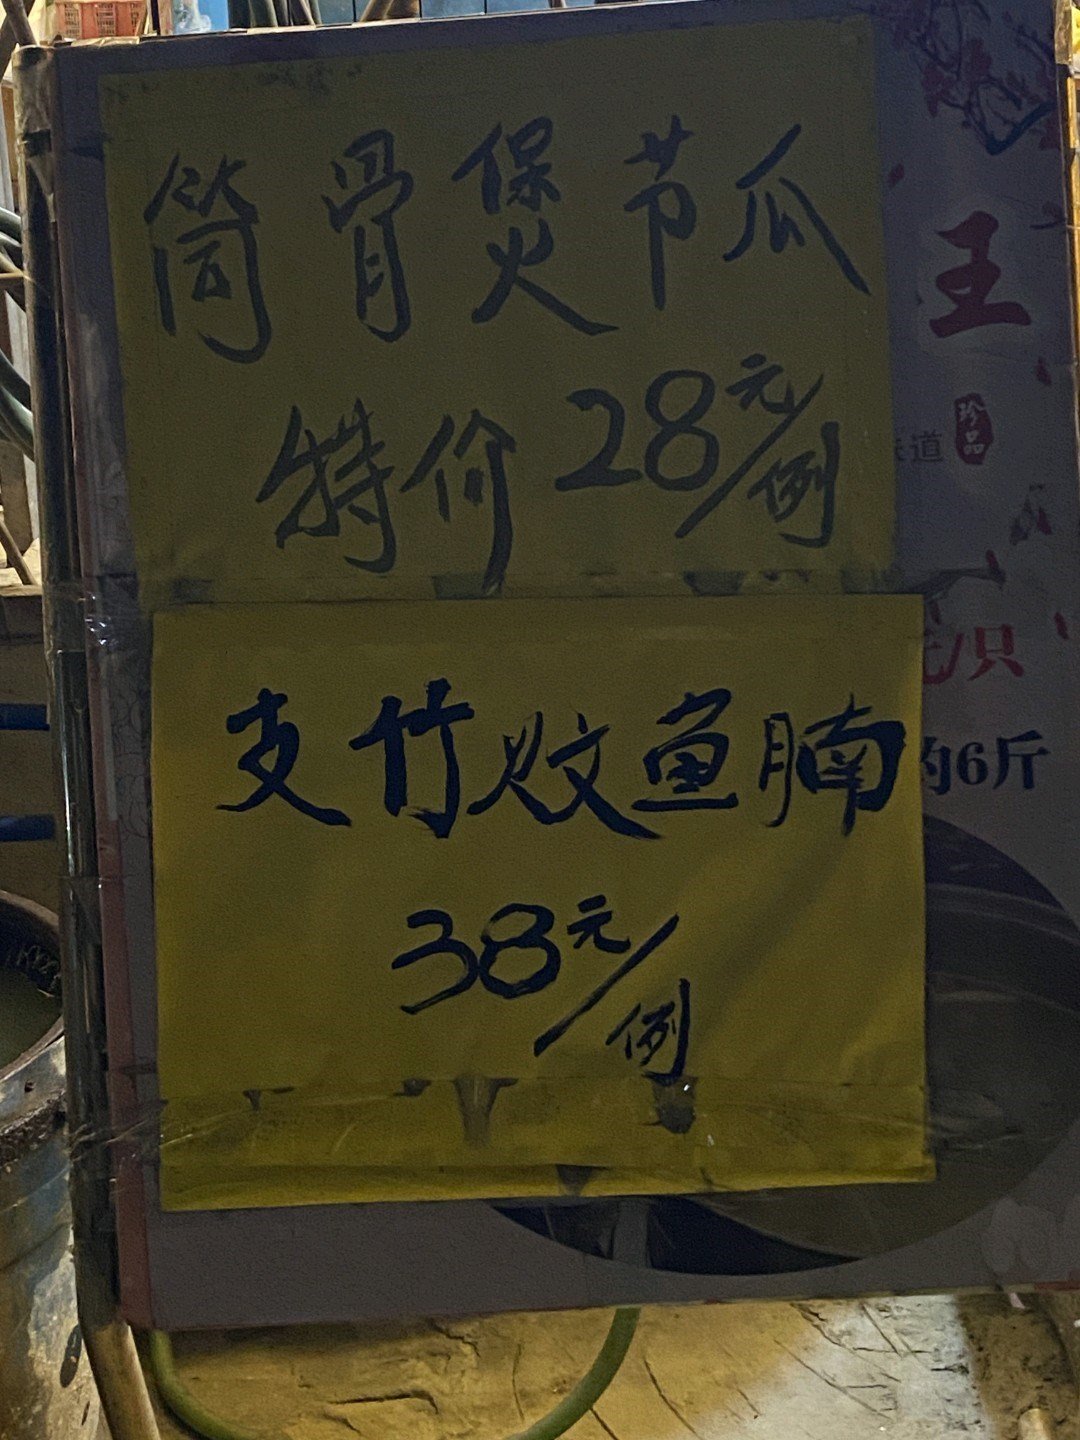 筒骨煲节瓜
特价28元/例
支竹炆鱼腩
38元/例
王
味道
珍品
元/只
约6斤